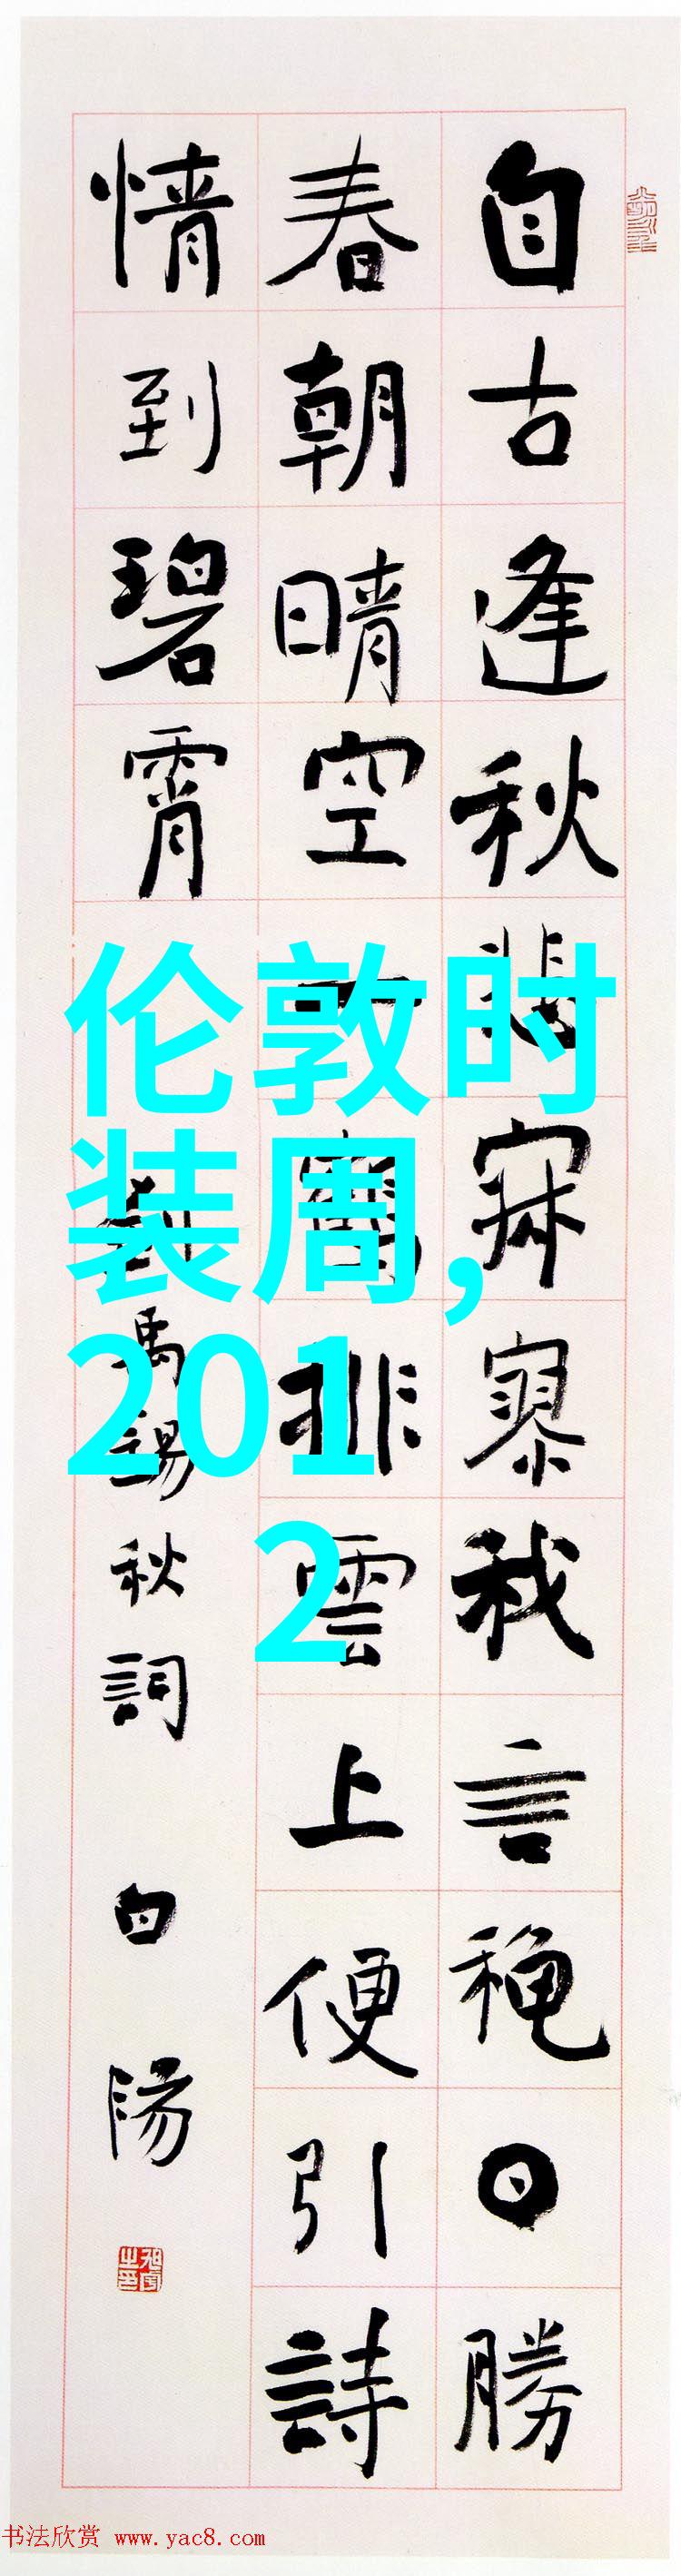 自古逢秋悲寂寥我言秋日勝
春朝晴空一鶴排雲上便引詩
情到碧霄
劉禹錫秋詞
白陽
伦敦时
装周,
201
2
书法欣赏 www.yac8.com